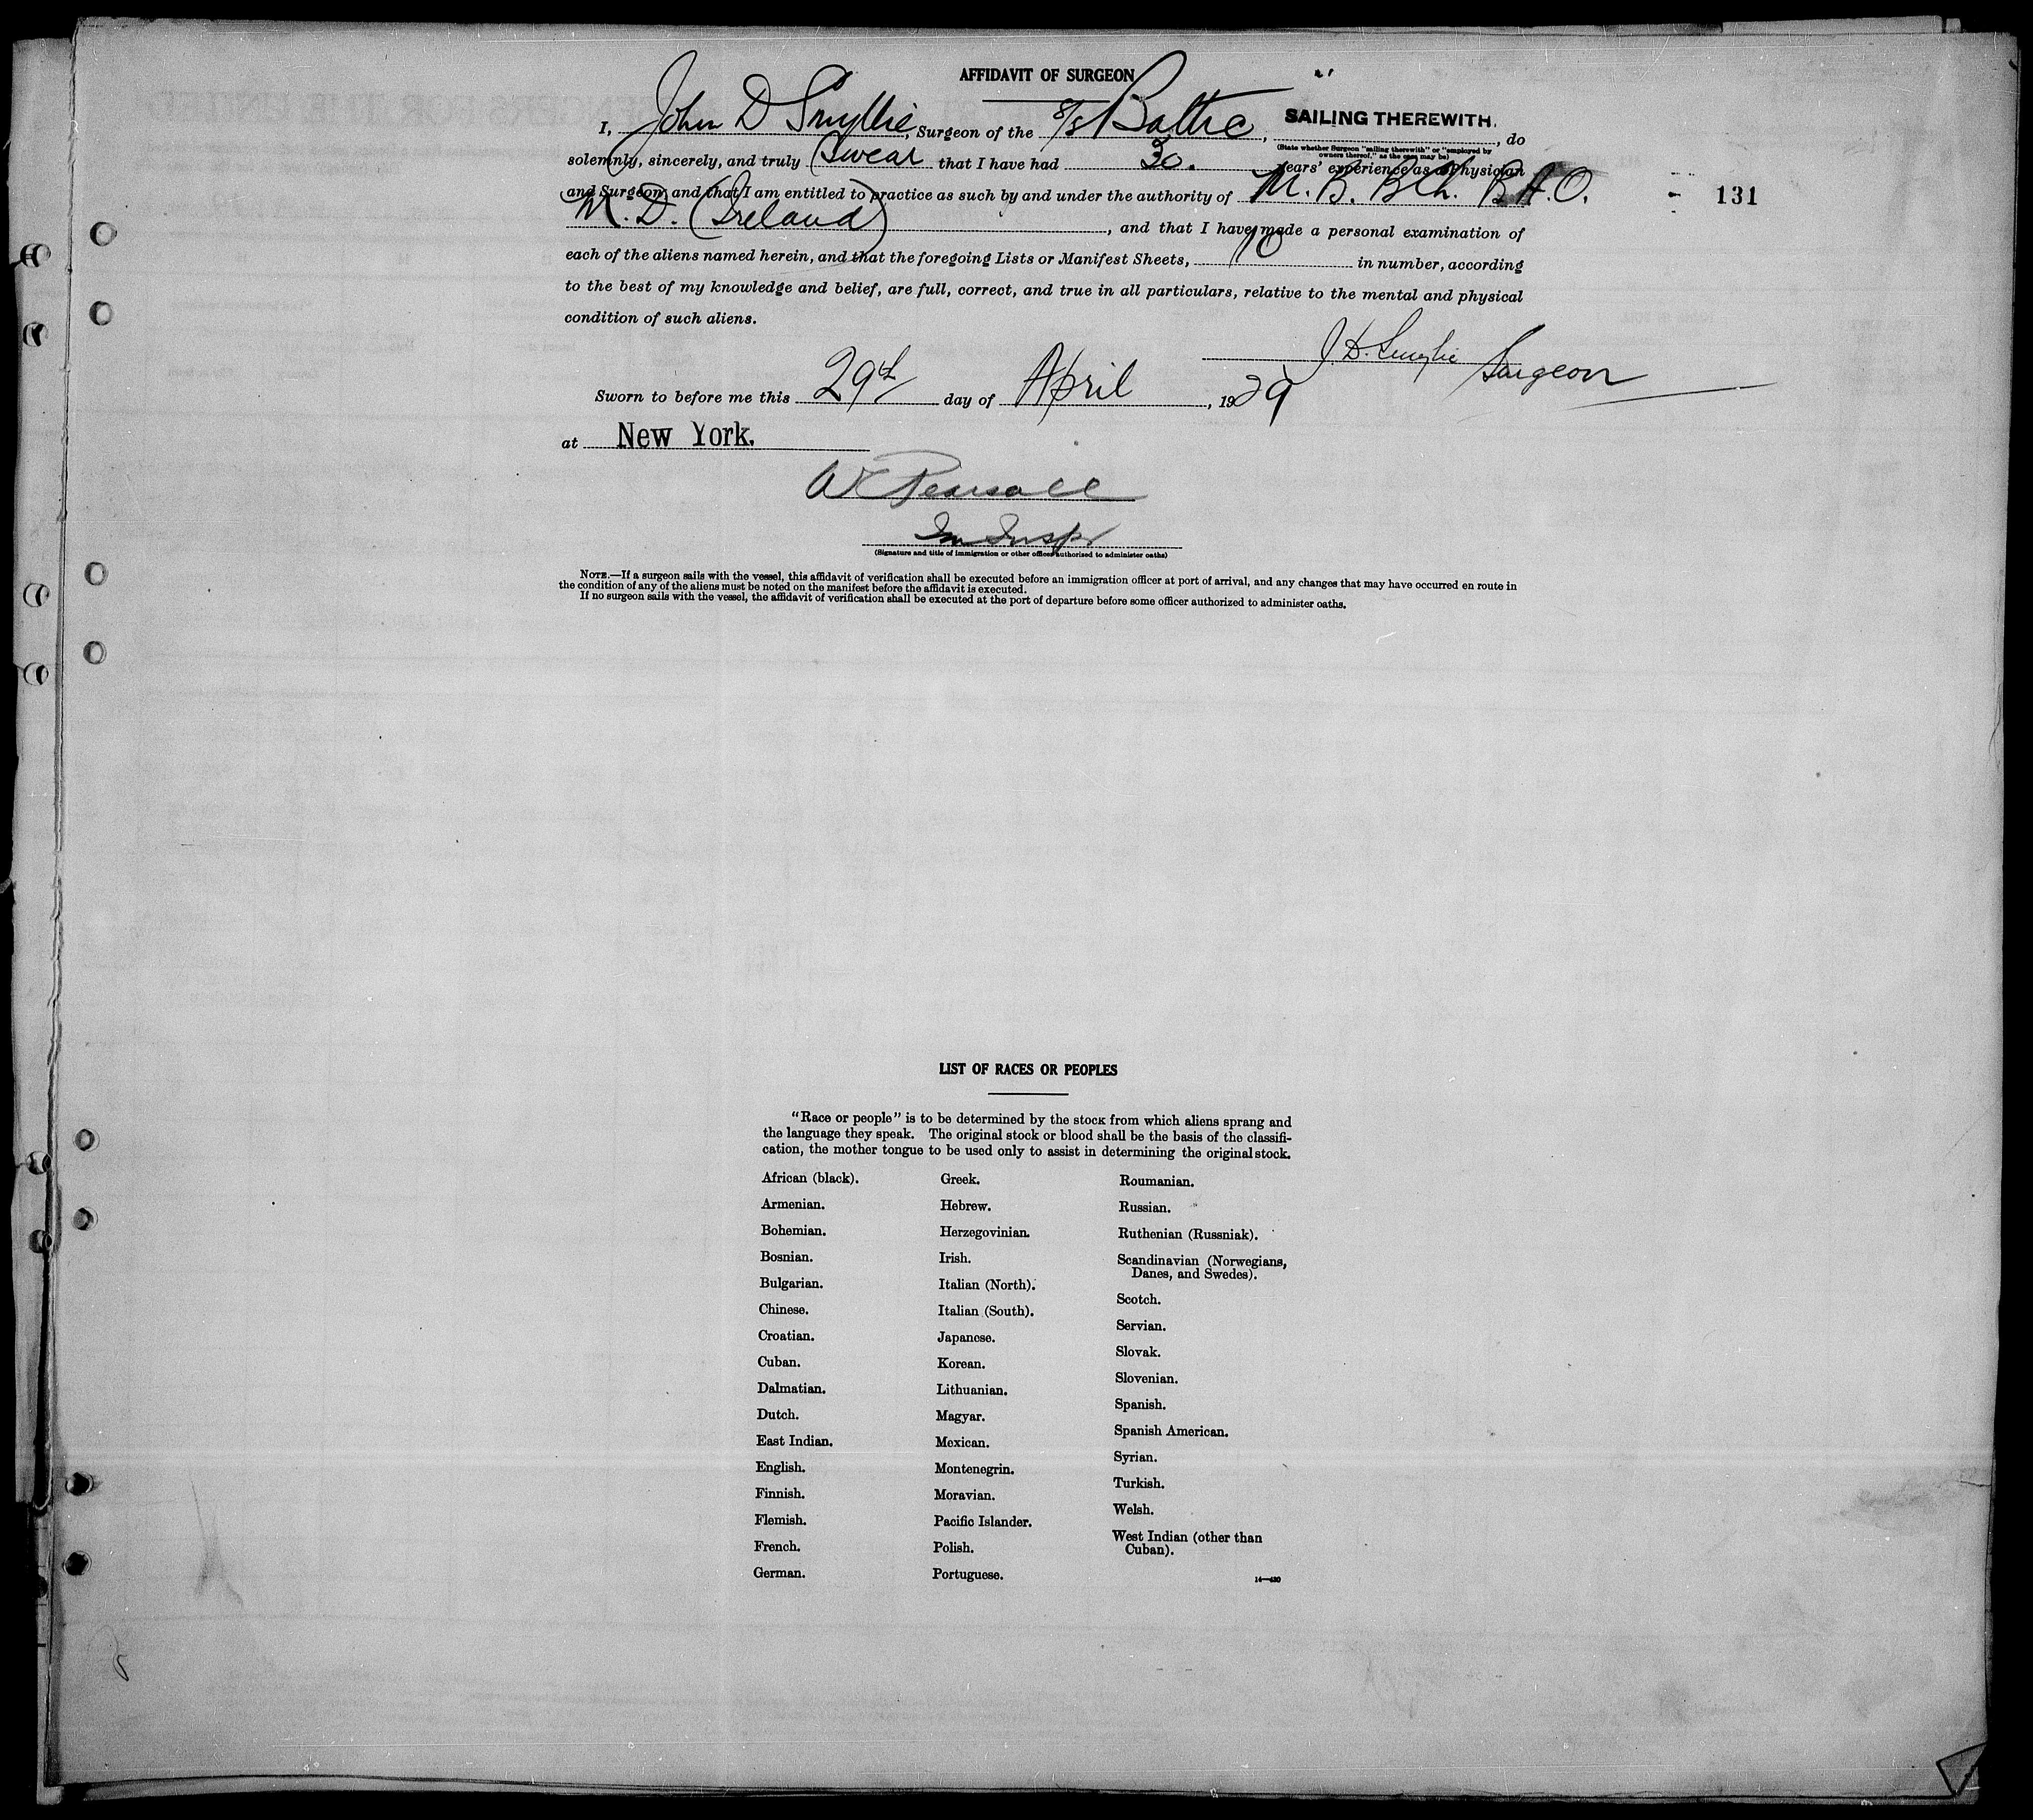 AFFIDAVIT OF SURGEON
I, John D Smyllie, Surgeon of the S/S Baltic, SAILING THEREWITH, do
(State whether Surgeon "sailing therewith" or "employed by owners thereof," as the case may be)
solemnly, sincerely, and truly Swear that I have had 30. years' experience as a Physician
and Surgeon, and that I am entitled to practice as such by and under the authority of M. B. B Ch. B A. O.
131
M. D. (Ireland), and that I have made a personal examination of
each of the aliens named herein, and that the foregoing Lists or Manifest Sheets, 10 in number, according
to the best of my knowledge and belief, are full, correct, and true in all particulars, relative to the mental and physical
condition of such aliens.
J D. Smylie Surgeon
Sworn to before me this 29th day of April, 1929
at New York.
W Pearsall
Im Inspr
(Signature and title of immigration or other officer authorized to administer oaths)
NOTE.—If a surgeon sails with the vessel, this affidavit of verification shall be executed before an immigration officer at port of arrival, and any changes that may have occurred en route in
the condition of any of the aliens must be noted on the manifest before the affidavit is executed.
If no surgeon sails with the vessel, the affidavit of verification shall be executed at the port of departure before some officer authorized to administer oaths.
LIST OF RACES OR PEOPLES
"Race or people" is to be determined by the stock from which aliens sprang and
the language they speak. The original stock or blood shall be the basis of the classifi-
cation, the mother tongue to be used only to assist in determining the original stock.
African (black).
Armenian.
Bohemian.
Bosnian.
Bulgarian.
Chinese.
Croatian.
Cuban.
Dalmatian.
Dutch.
East Indian.
English.
Finnish.
Flemish.
French.
German.
Greek.
Hebrew.
Herzegovinian.
Irish.
Italian (North).
Italian (South).
Japanese.
Korean.
Lithuanian.
Magyar.
Mexican.
Montenegrin.
Moravian.
Pacific Islander.
Polish.
Portuguese.
Roumanian.
Russian.
Ruthenian (Russniak).
Scandinavian (Norwegians,
Danes, and Swedes).
Scotch.
Servian.
Slovak.
Slovenian.
Spanish.
Spanish American.
Syrian.
Turkish.
Welsh.
West Indian (other than
Cuban).
14—430